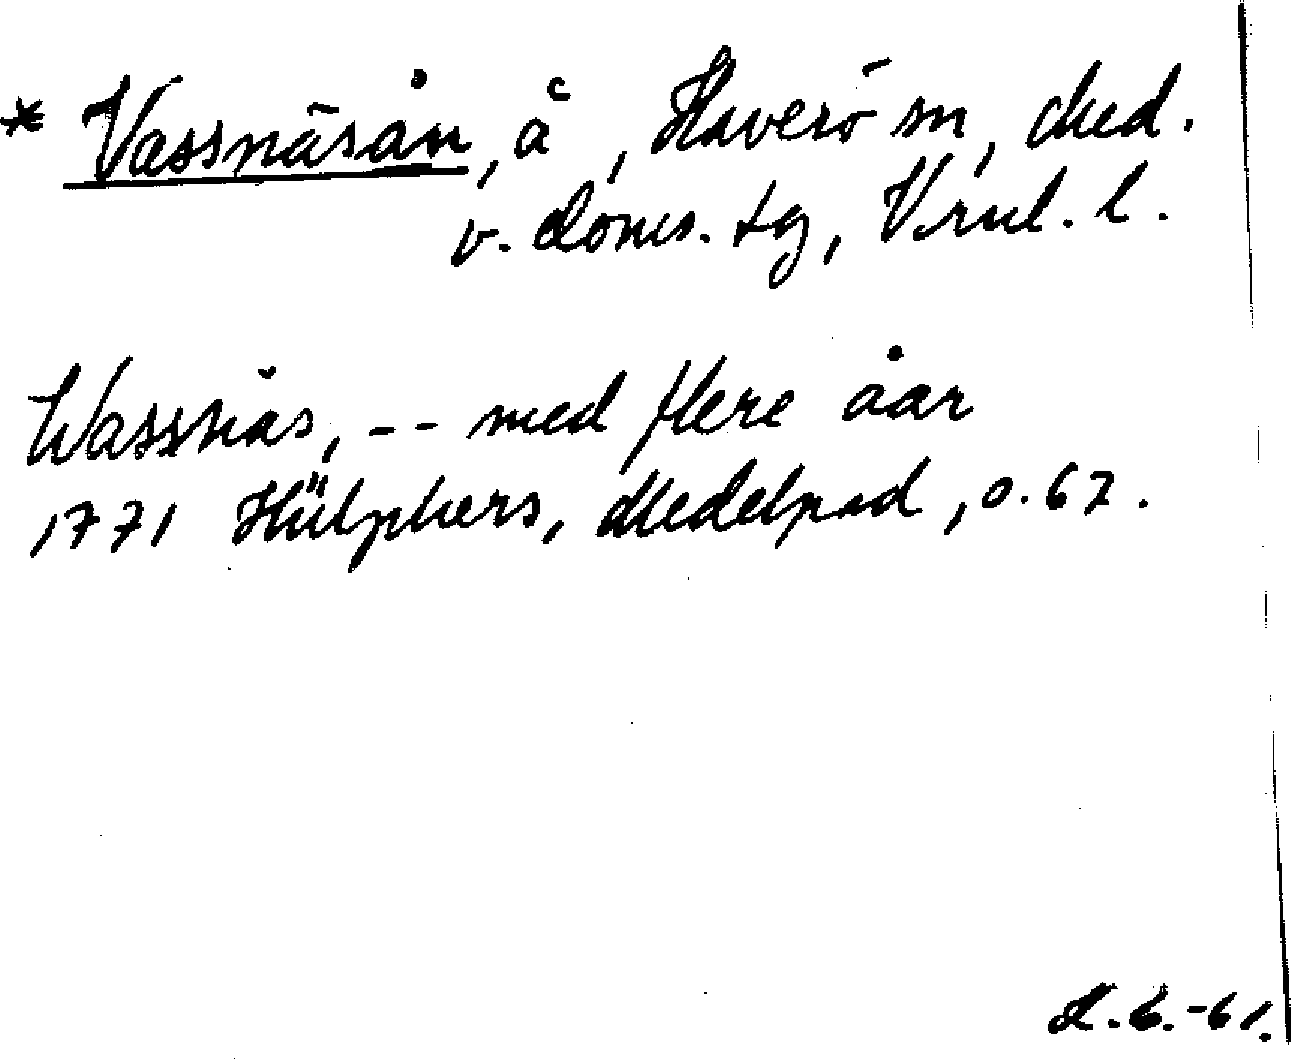 * Vassnäsån, å, Haverö sn, Med.
v. doms. tg, Vrnl. l.
Wassnäs, -- med flere åar
1771 Hülphers, Medelpad, s. 67.
-61.